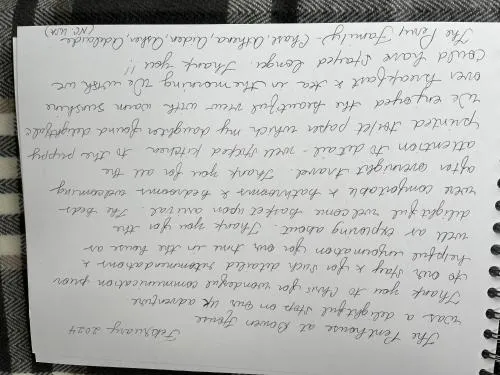 February 2024
The Penthouse at Bowen House
was a delightful stop on our UK adventure.
Thank you to Chris for wonderful communication prior
to our stay & for such detailed recommendations &
helpful information for our time in the house as
well as exploring about. Thank you for the
delightful welcome basket upon arrival. The beds
were comfortable & bathrooms & bedrooms welcoming
after overnight travel. Thank you for all the
attention to detail - well stocked kitchen to the puppy
printed toilet paper which my daughter found delightful.
We enjoyed the beautiful view with warm sunshine
over breakfast & tea in the morning. We wish we
could have stayed longer. Thank you!!
The Perry Family - Chase, Athena, Aiden, Asher, Adelaide
(NC, USA)